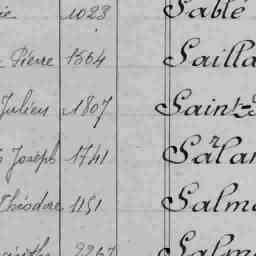 ie 1023 Sable
Pierre 1564 Sailla
Julien 1807 Saint-
Joseph 1741 Sarlan
Théodore 1151 Salm
2267 Salm